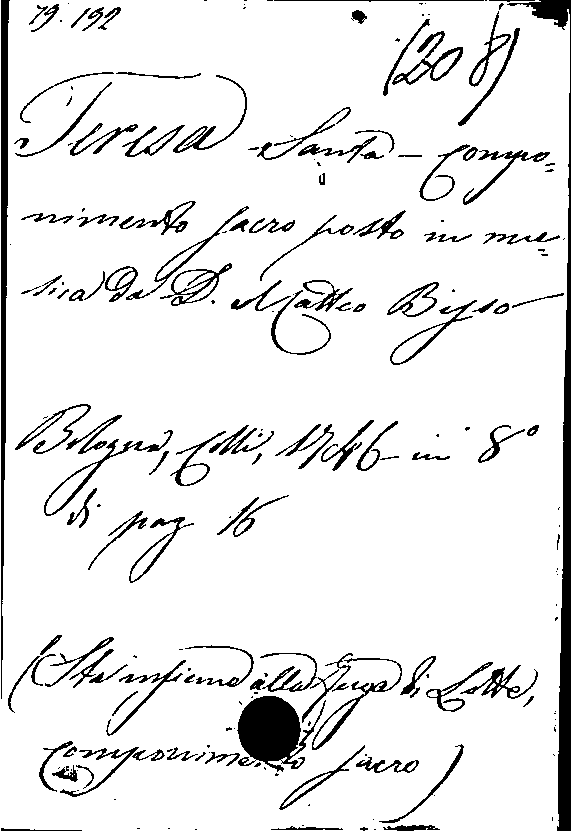 79. 192
(208)
Teresa - Santa - Compo=
nimento sacro posto in mu=
sica da D. Matteo Bisso
Bologna, Colli, 1746 in 8°
di pag 16
(Sta insieme alla Fuga di Lotte,
componimento sacro)